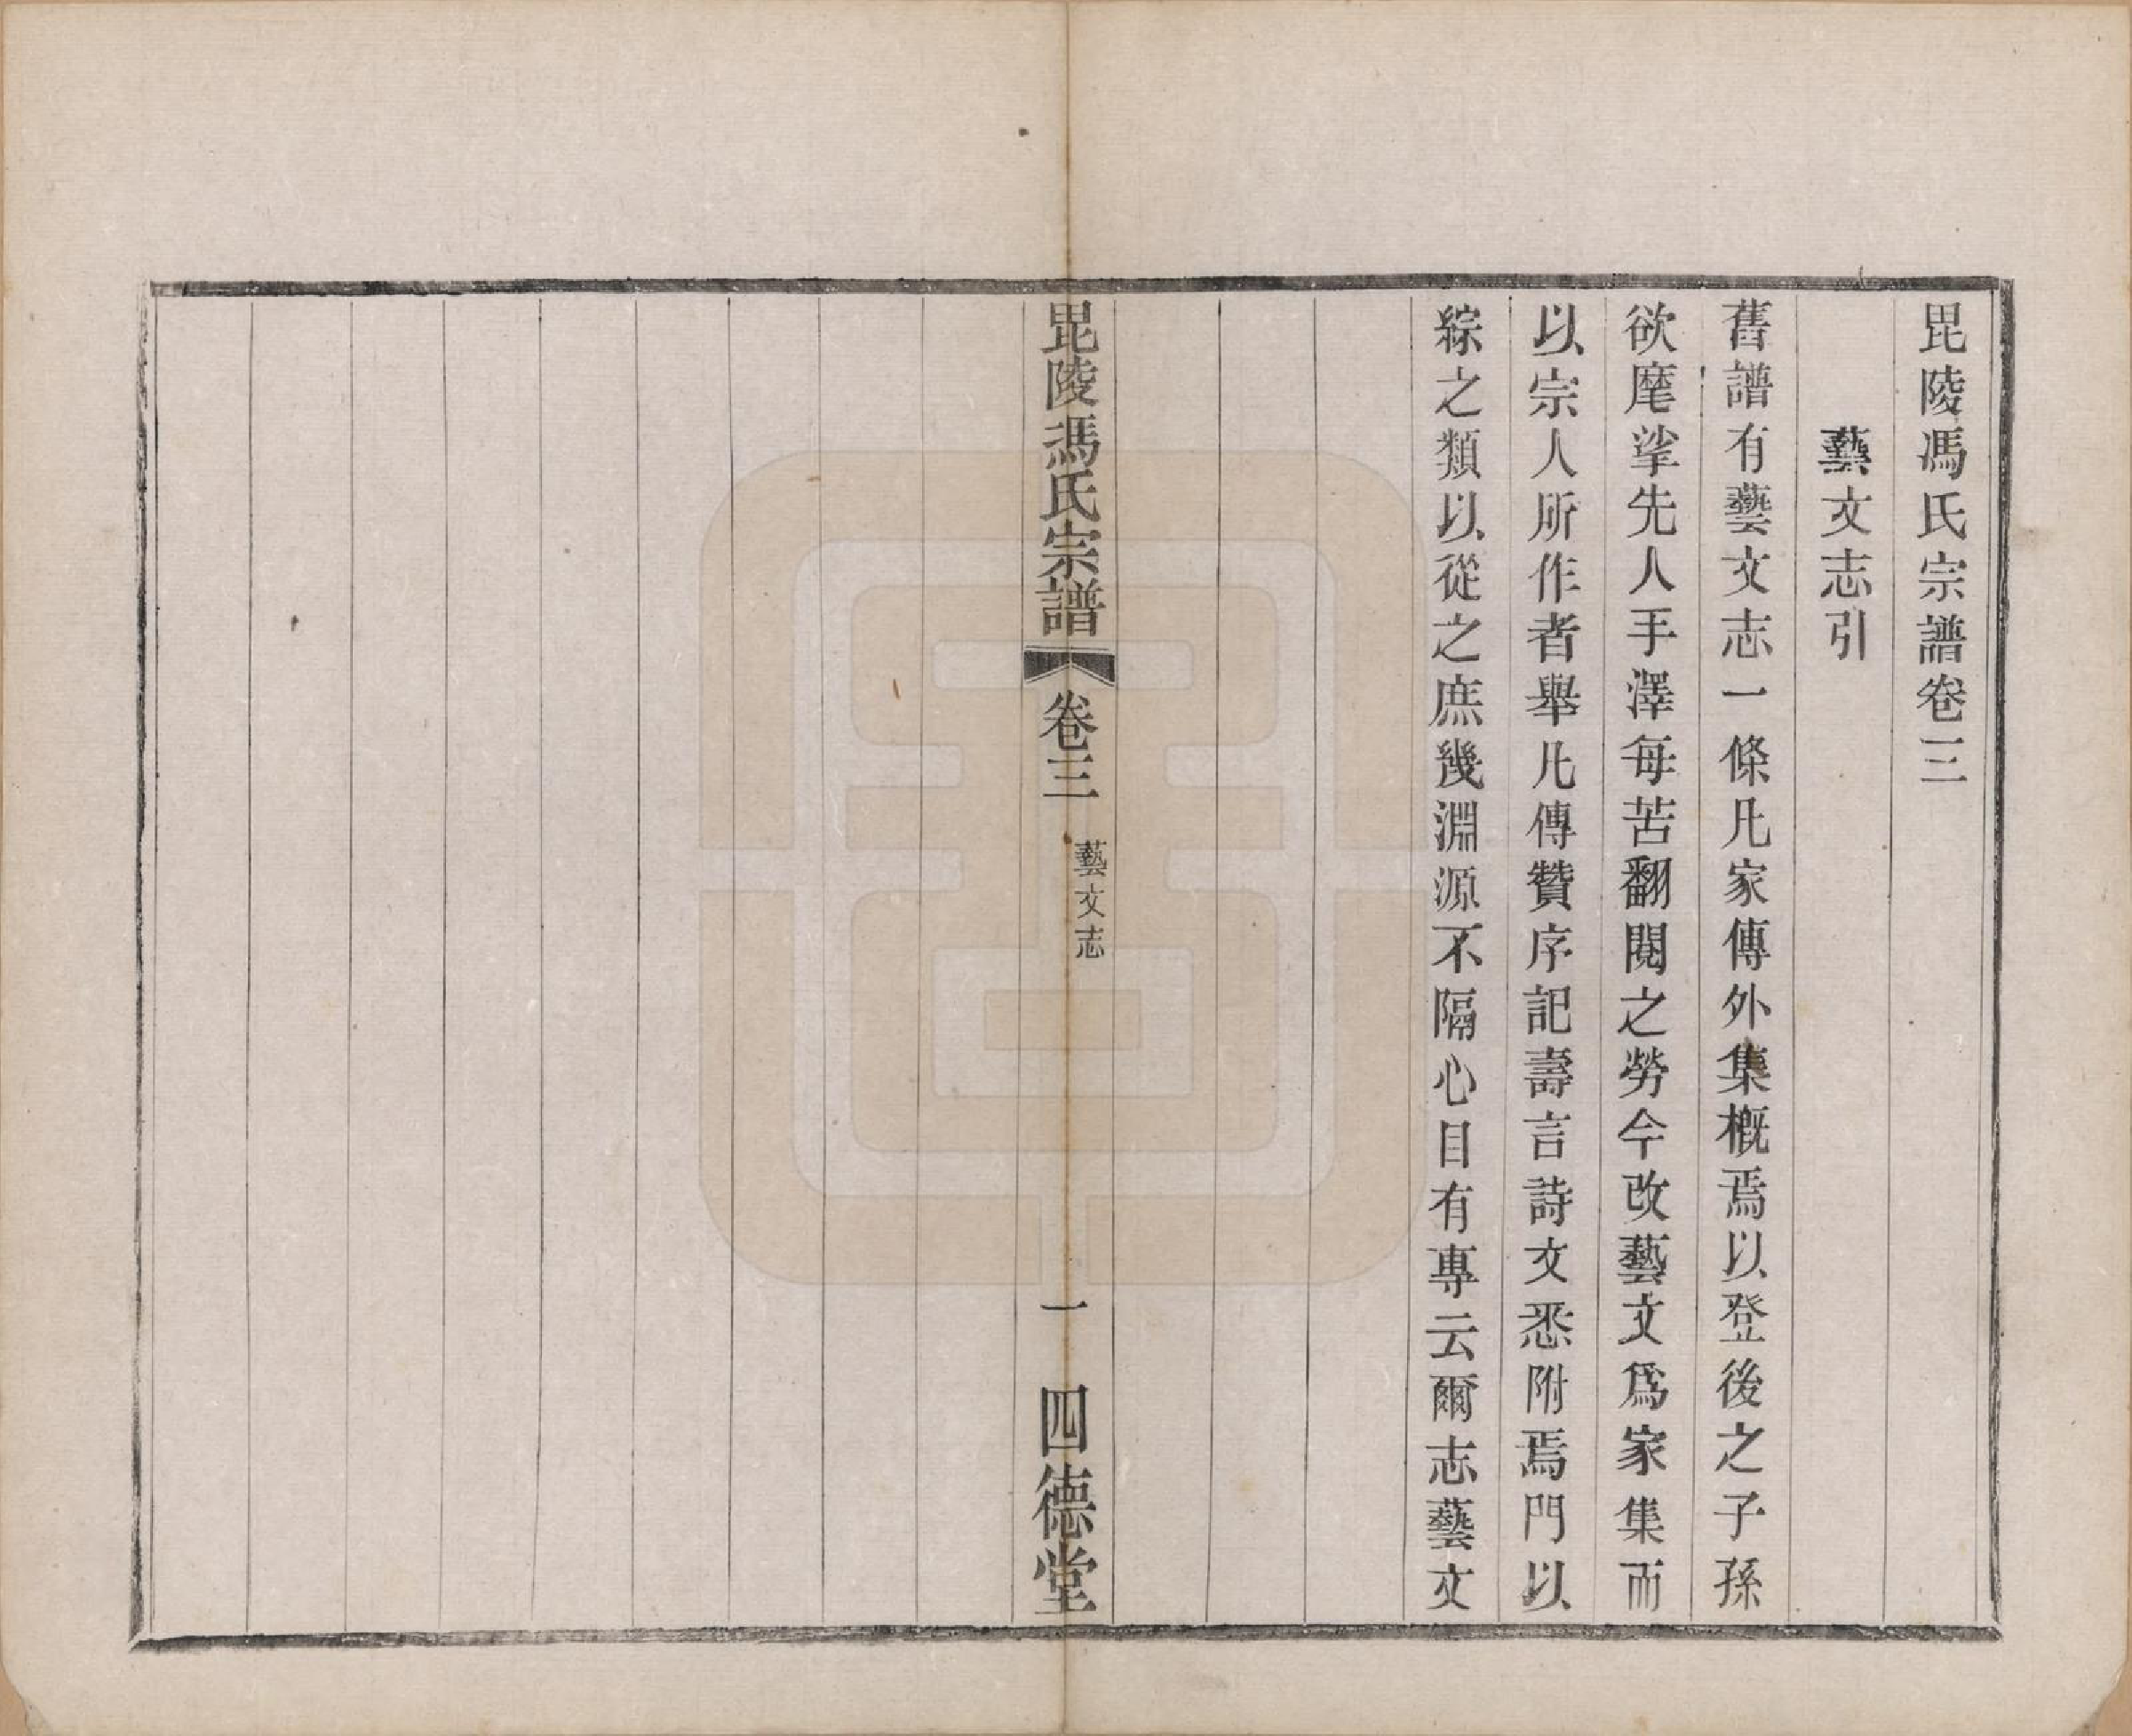 毘陵馮氏宗譜卷三
藝文志引
舊譜有藝文志一條凡家傳外集概焉以登後之子孫
欲麾挲先人手澤每苦翻閱之勞今改藝文爲家集而
以宗人所作者舉凡傳贊序記壽言詩文悉附焉門以
綜之類以從之庶幾淵源不隔心目有專云爾志藝文
毘陵馮氏宗譜
卷三
藝文志
一
四德堂